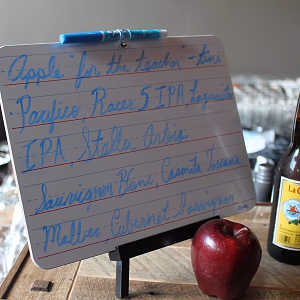 Apple for the teacher - tini
Pacifico, Racer 5 IPA, Lagunitas
IPA Stella Artois
Sauvignon Blanc, Casmita Toscana
Malbec, Cabernet Sauvignon